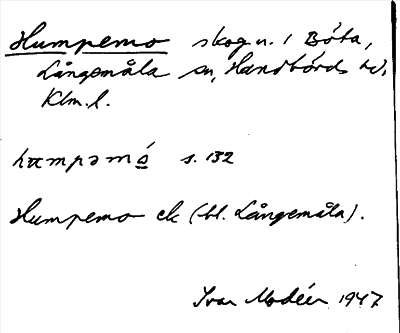 Humpemo skog n. i Böta,
Långemåla sn, Handbörds hd,
Klm. l.
hʉmpəmó s. 132
Humpemo ek (bl. Långemåla).
Ivar Modéer 1947